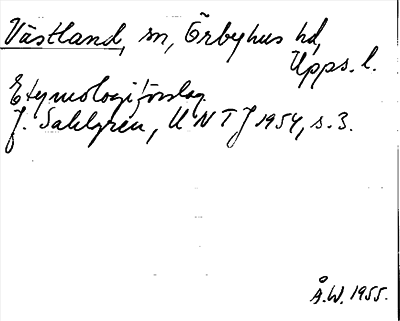 Västland, sn, Örbyhus hd,
Upps. l.
Etymologiförslag
J. Sahlgren, UNTJ 1954, s. 3.
Å.W. 1955.